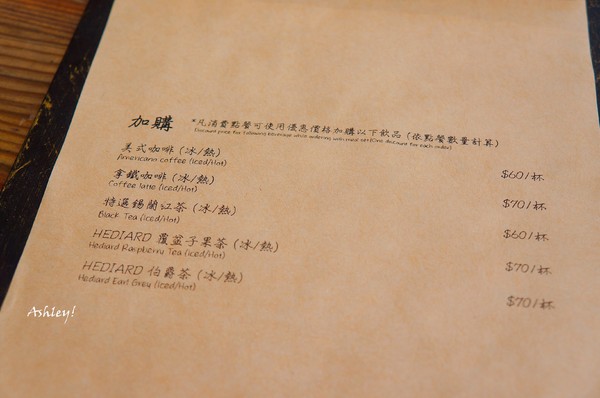 加購 *凡消費點餐可使用優惠價格加購以下飲品 (依點餐數量計算)
Discount price for following beverage while ordering with meal set (One discount for each order)
美式咖啡 (冰/熱) $60/杯
Americano coffee (Iced/Hot)
拿鐵咖啡 (冰/熱) $70/杯
Coffee latte (Iced/Hot)
特選錫蘭紅茶 (冰/熱) $60/杯
Black Tea (Iced/Hot)
HEDIARD 覆盆子果茶 (冰/熱) $70/杯
Hediard Raspberry Tea (Iced/Hot)
HEDIARD 伯爵茶 (冰/熱) $70/杯
Hediard Earl Grey (Iced/Hot)
Ashley!